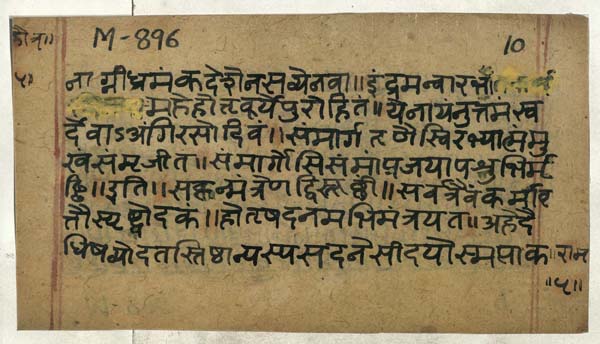 हौत्र॥ M-896 10
५॥ नाग्नीध्रमंकदेशेनसव्येनवा॥इंद्रमन्वारभा
महेहोतृवूर्येपुरोहितं॥येनायंनुत्तमंस्व
र्देवाऽअंगिरसोदिवं॥संमार्गतृणैस्त्रिरभ्यात्मंमु
खंसंमृजीत॥संमार्गोसिसंमाप्रजयापशुभिर्मृ
ड्ढि॥इति॥सकृन्मंत्रेणद्विस्तूष्णीं॥सर्वत्रैवंकर्मावृ
त्तौस्पृष्ट्वोदकं॥होतृषदनमभिमंत्रयेत॥अहेदै
धिषव्योदतस्तिष्ठान्यस्यसदनेसीदयोस्मत्पाक॥राम
॥५॥